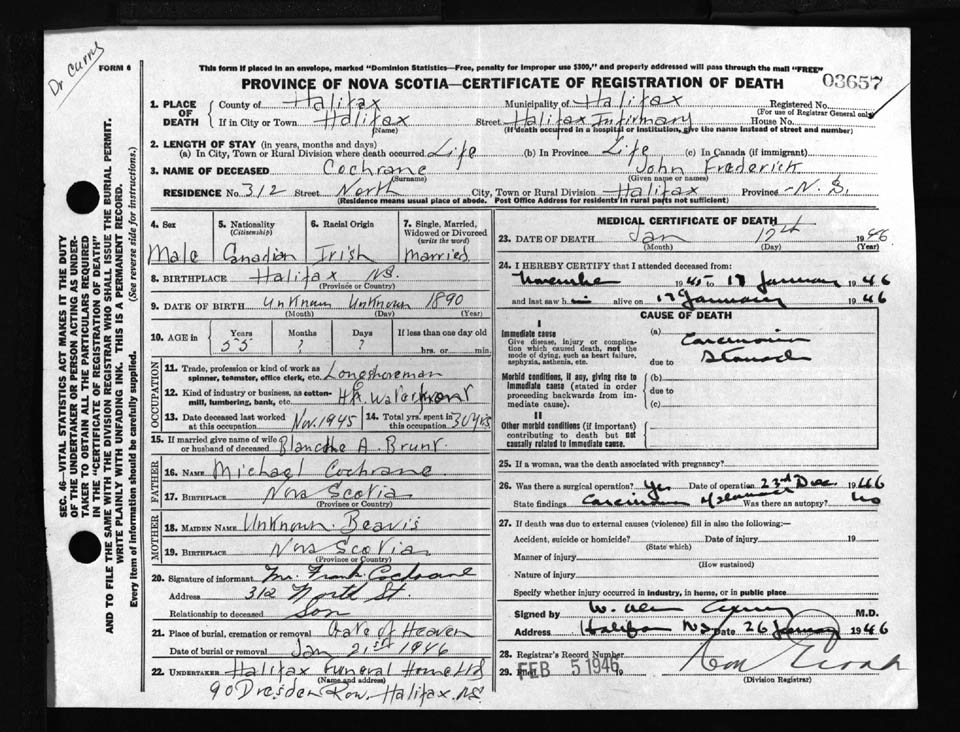 Dr Curry
FORM 6
This form if placed in an envelope, marked "Dominion Statistics—Free, penalty for improper use $300," and properly addressed will pass through the mail "FREE"
PROVINCE OF NOVA SCOTIA—CERTIFICATE OF REGISTRATION OF DEATH
03657
SEC. 46—VITAL STATISTICS ACT MAKES IT THE DUTY
OF THE UNDERTAKER OR PERSON ACTING AS UNDER-
TAKER TO OBTAIN ALL THE PARTICULARS REQUIRED
IN THE "CERTIFICATE OF REGISTRATION OF DEATH"
AND TO FILE THE SAME WITH THE DIVISION REGISTRAR WHO SHALL ISSUE THE BURIAL PERMIT.
WRITE PLAINLY WITH UNFADING INK. THIS IS A PERMANENT RECORD.
Every item of information should be carefully supplied. (See reverse side for instructions.)
1. PLACE OF DEATH
County of Halifax Municipality of Halifax Registered No.
(For use of Registrar General only)
If in City or Town Halifax Street Halifax Infirmary House No.
(Name) (If death occurred in a hospital or institution, give the name instead of street and number)
2. LENGTH OF STAY (in years, months and days)
(a) In City, Town or Rural Division where death occurred Life (b) In Province Life (c) In Canada (if immigrant)
3. NAME OF DECEASED Cochrane John Frederick
(Surname) (Given name or names)
RESIDENCE No 312 Street North City, Town or Rural Division Halifax Province N.S.
(Residence means usual place of abode. Post Office Address for residents in rural parts not sufficient)
4. Sex 5. Nationality (Citizenship) 6. Racial Origin 7. Single, Married, Widowed or Divorced (write the word)
Male Canadian Irish Married
8. BIRTHPLACE Halifax N.S.
(Province or Country)
9. DATE OF BIRTH Unknown Unknown 1890
(Month) (Day) (Year)
10. AGE in Years Months Days If less than one day old
55 ? ? hrs. or min.
OCCUPATION
11. Trade, profession or kind of work as
spinner, teamster, office clerk, etc. Longshoreman
12. Kind of industry or business, as cotton-
mill, lumbering, bank, etc. Hfx. Waterfront
13. Date deceased last worked at this occupation Nov. 1945 14. Total yrs. spent in this occupation 30 yrs
15. If married give name of wife
or husband of deceased Blanche A. Brunt
FATHER
16. NAME Michael Cochrane
17. BIRTHPLACE Nova Scotia
(Province or Country)
MOTHER
18. MAIDEN NAME Unknown Beavis
19. BIRTHPLACE Nova Scotia
(Province or Country)
20. Signature of informant Mr. Frank Cochrane
Address 312 North St.
Relationship to deceased Son
21. Place of burial, cremation or removal Gate of Heaven
Date of burial or removal Jan 21st 1946
22. UNDERTAKER Halifax Funeral Home Ltd
(Name and address)
90 Dresden Row, Halifax, N.S.
MEDICAL CERTIFICATE OF DEATH
23. DATE OF DEATH Jan 17th 1946
(Month) (Day) (Year)
24. I HEREBY CERTIFY that I attended deceased from:
November 1945 to 17 January 1946
and last saw him alive on 17 January 1946
CAUSE OF DEATH
I
Immediate cause (a) Carcinoma
Give disease, injury or complica-
tion which caused death, not the
mode of dying, such as heart failure,
asphyxia, asthenia, etc.
Stomach
due to
Morbid conditions, if any, giving rise to
immediate cause (stated in order
proceeding backwards from im-
mediate cause).
(b)
due to
(c)
II
Other morbid conditions (if important)
contributing to death but not
causally related to immediate cause.
25. If a woman, was the death associated with pregnancy?
26. Was there a surgical operation? Yes Date of operation 23rd Dec 1946
State findings Carcinoma of stomach Was there an autopsy? No
27. If death was due to external causes (violence) fill in also the following:—
Accident, suicide or homicide? Date of injury 19
(State which)
Manner of injury
(How sustained)
Nature of injury
Specify whether injury occurred in industry, in home, or in public place
Signed by W. Alan Curry M.D.
Address Halifax NS Date 26 January 1946
28. Registrar's Record Number
29. Filed FEB 5 1946 19
(Division Registrar)